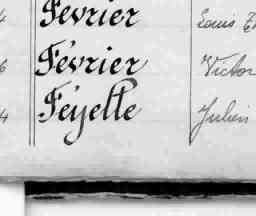 Février Louis
Février Victor
Féyelle Julien